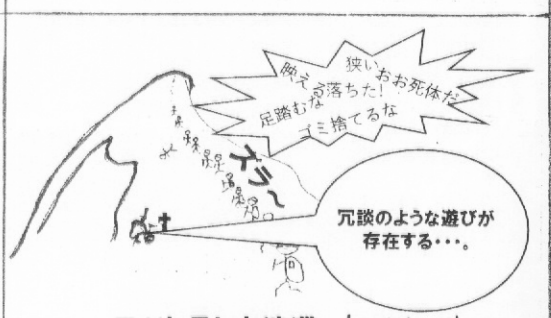 狭い
おお死体だ
映える
落ちた!
足踏むな
ゴミ捨てるな
ズラ〜
冗談のような遊びが
存在する・・・。